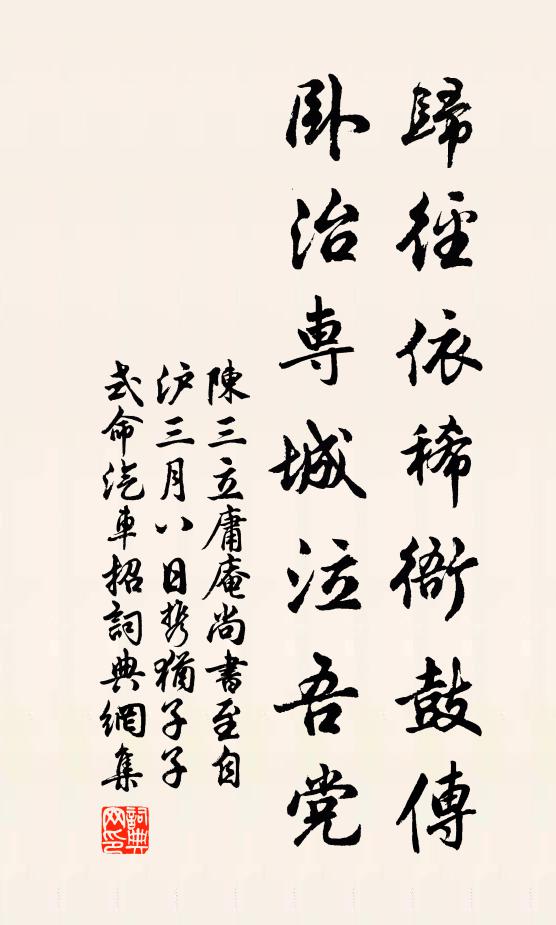 歸徑依稀衙鼓傳
臥治專城泣吾党
陳三立庸庵尚書至自
沪三月八日携猶子子
式命汽車招詞典網集
詞典
网印